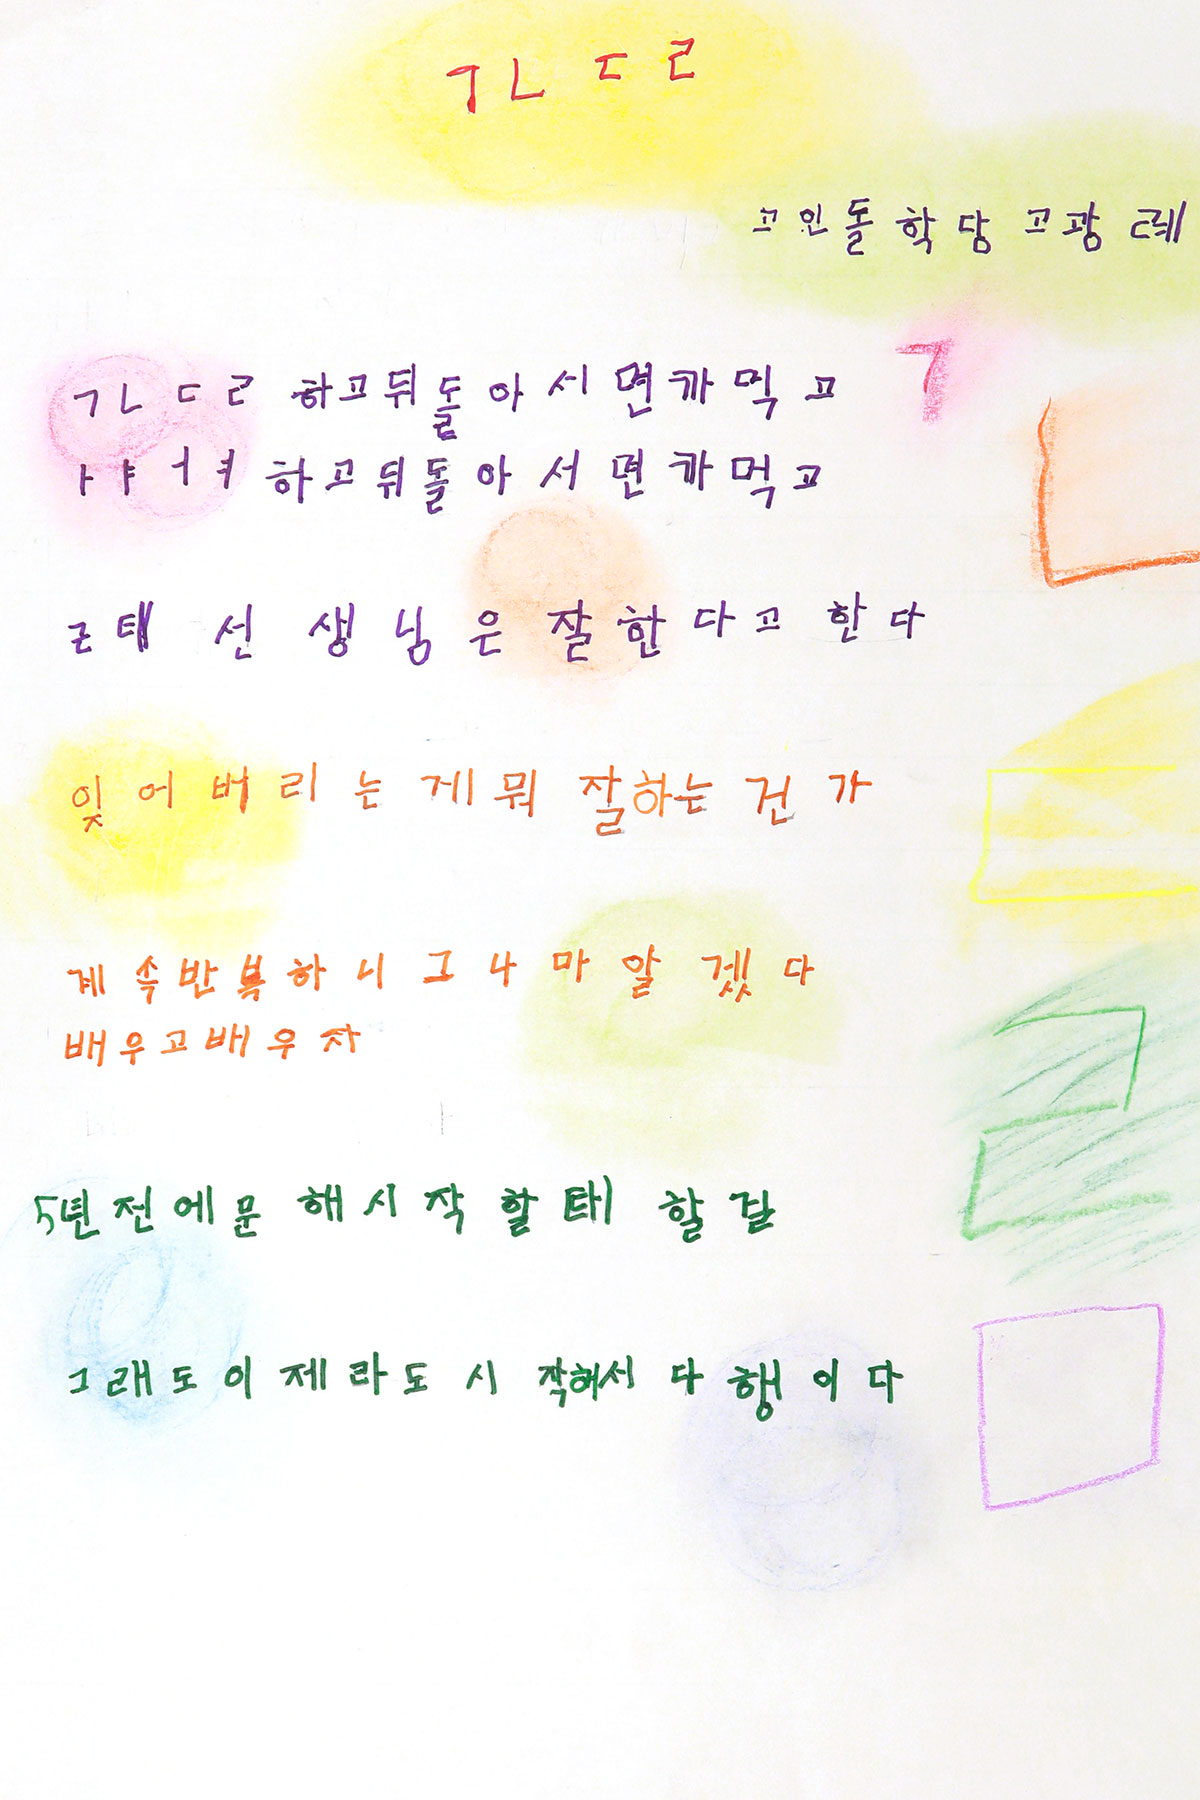 ㄱㄴㄷㄹ
고인돌학당 고광례
ㄱㄴㄷㄹ 하고뒤돌아서면까먹고
ㅏㅑㅓㅕ 하고뒤돌아서면까먹고
근태 선생님은 잘한다고 한다
잊어버리는게뭐 잘하는건가
계속반복하니그나마알겠다
배우고배우자
5년전에문해시작할태할걸
그래도이제라도시작해서다행이다